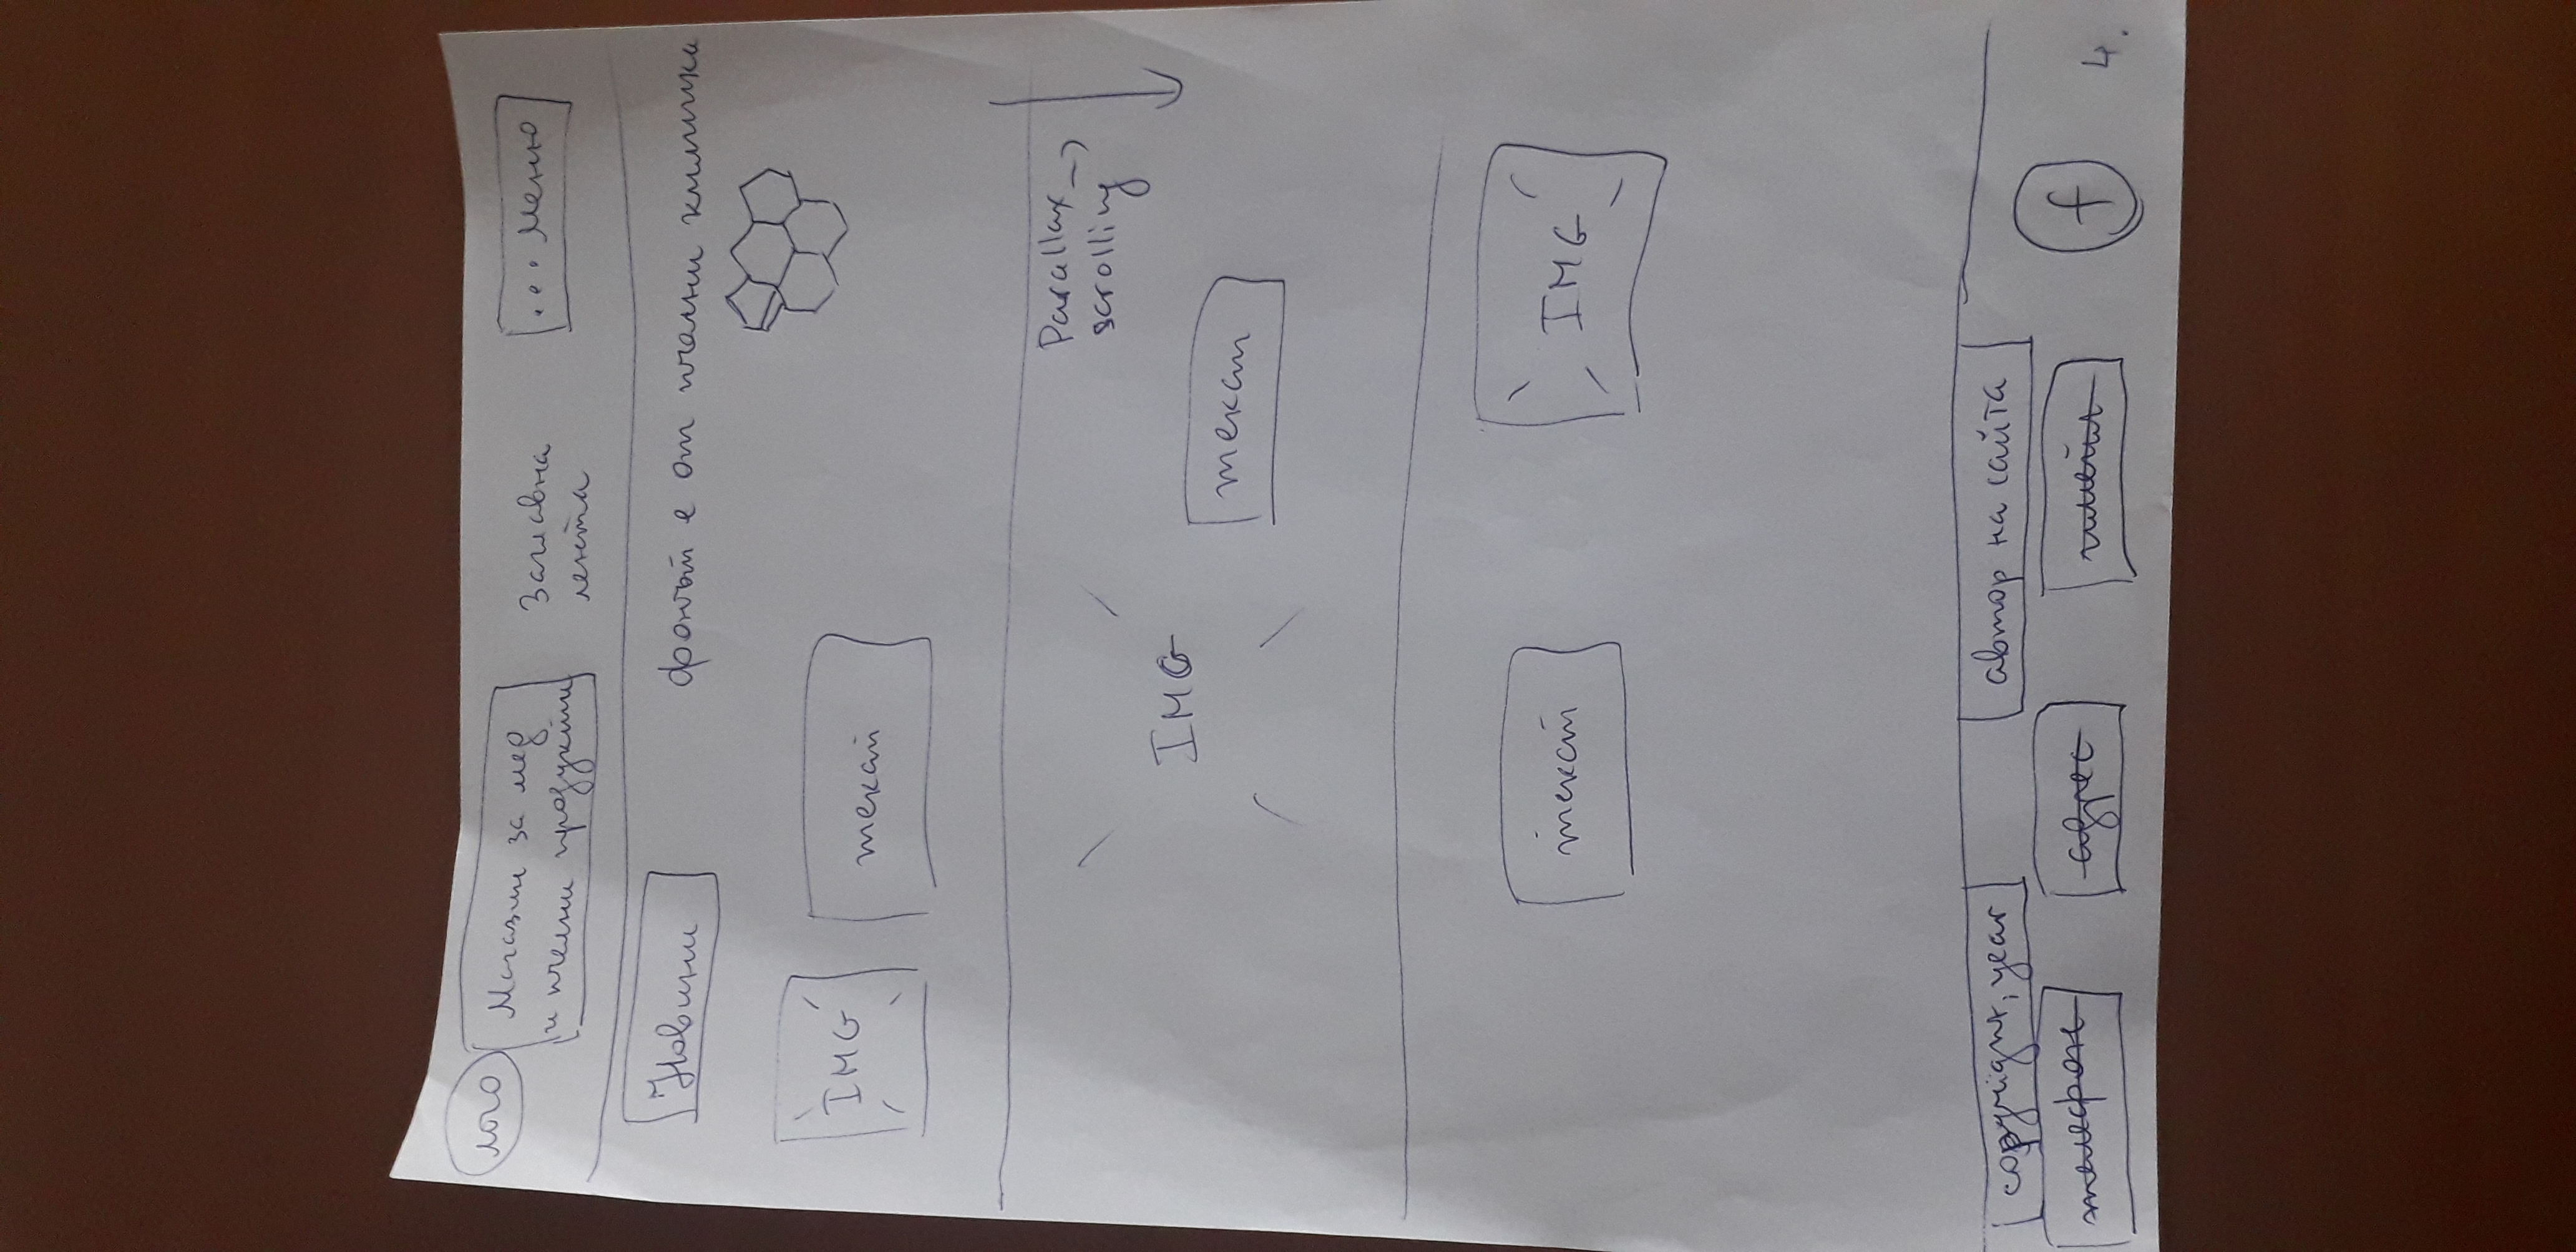 лого
Магазин за мед
и пчелни продукти
Заглавна
лента
... Меню
Новини
фонът е от пчелни килийки
IMG
текст
Parallax
scrolling
IMG
текст
текст
IMG
copyright, year
автор на сайта
телефон
адрес
имейл
f
4.